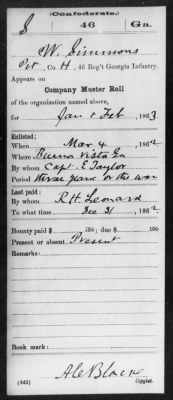 (Confederate.)
S 46 Ga.
W. Simmons
Pvt, Co. H, 46 Reg't Georgia Infantry.
Appears on
Company Muster Roll
of the organization named above,
for Jan & Feb, 1863.
Enlisted:
When Mar 4, 1862
Where Buena Vista Ga
By whom Capt. E Taylor
Period three years or the war
Last paid:
By whom R.H. Leonard
To what time Dec 31, 1862
Bounty paid $ 100; due $ 100
Present or absent Present
Remarks:
Book mark:
(642) Copyist.